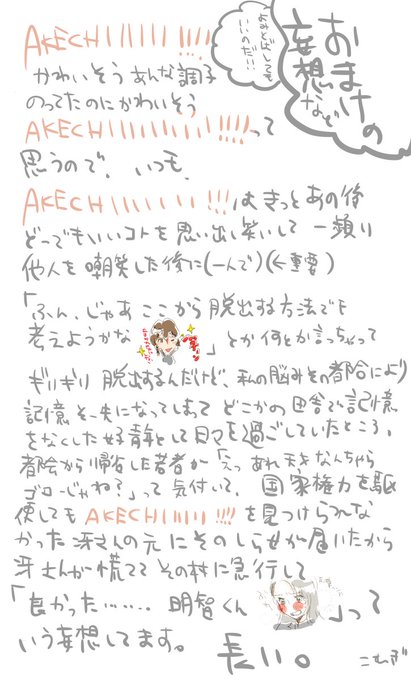 おまけの
妄想など
よみとばしても
いいのだ!!
AKECHIIIIIII!!!!
かわいそう あんな調子
のってたのにかわいそう
AKECHIIIIIIIIII!!!!って
思うので、いつも、
AKECHIIIIIIII!!!はきっとあの後
どーでもいいコトを思い出し笑いして 一頻り
他人を嘲笑した後に(一人で)(←重要)
「ふん、じゃあ ここから脱出する方法でも
考えようかな 」とか何とか言っちゃって
ギリギリ 脱出するんだけど、私の脳みその都合により
記憶そう失になってしまって どこかの田舎で記憶
をなくした好青年として日々を過ごしていたところ、
都会から帰省した若者が「えっ あれ 天才なんちゃら
ゴローじゃね?」って気付いて、国家権力を駆
使しても AKECHIIIIII!!!! を見つけられな
かった冴さんの元にそのしらせが届いたから
冴さんが慌ててその村に急行して
「良かった……… 明智くん 」って
いう妄想してます。 長い。